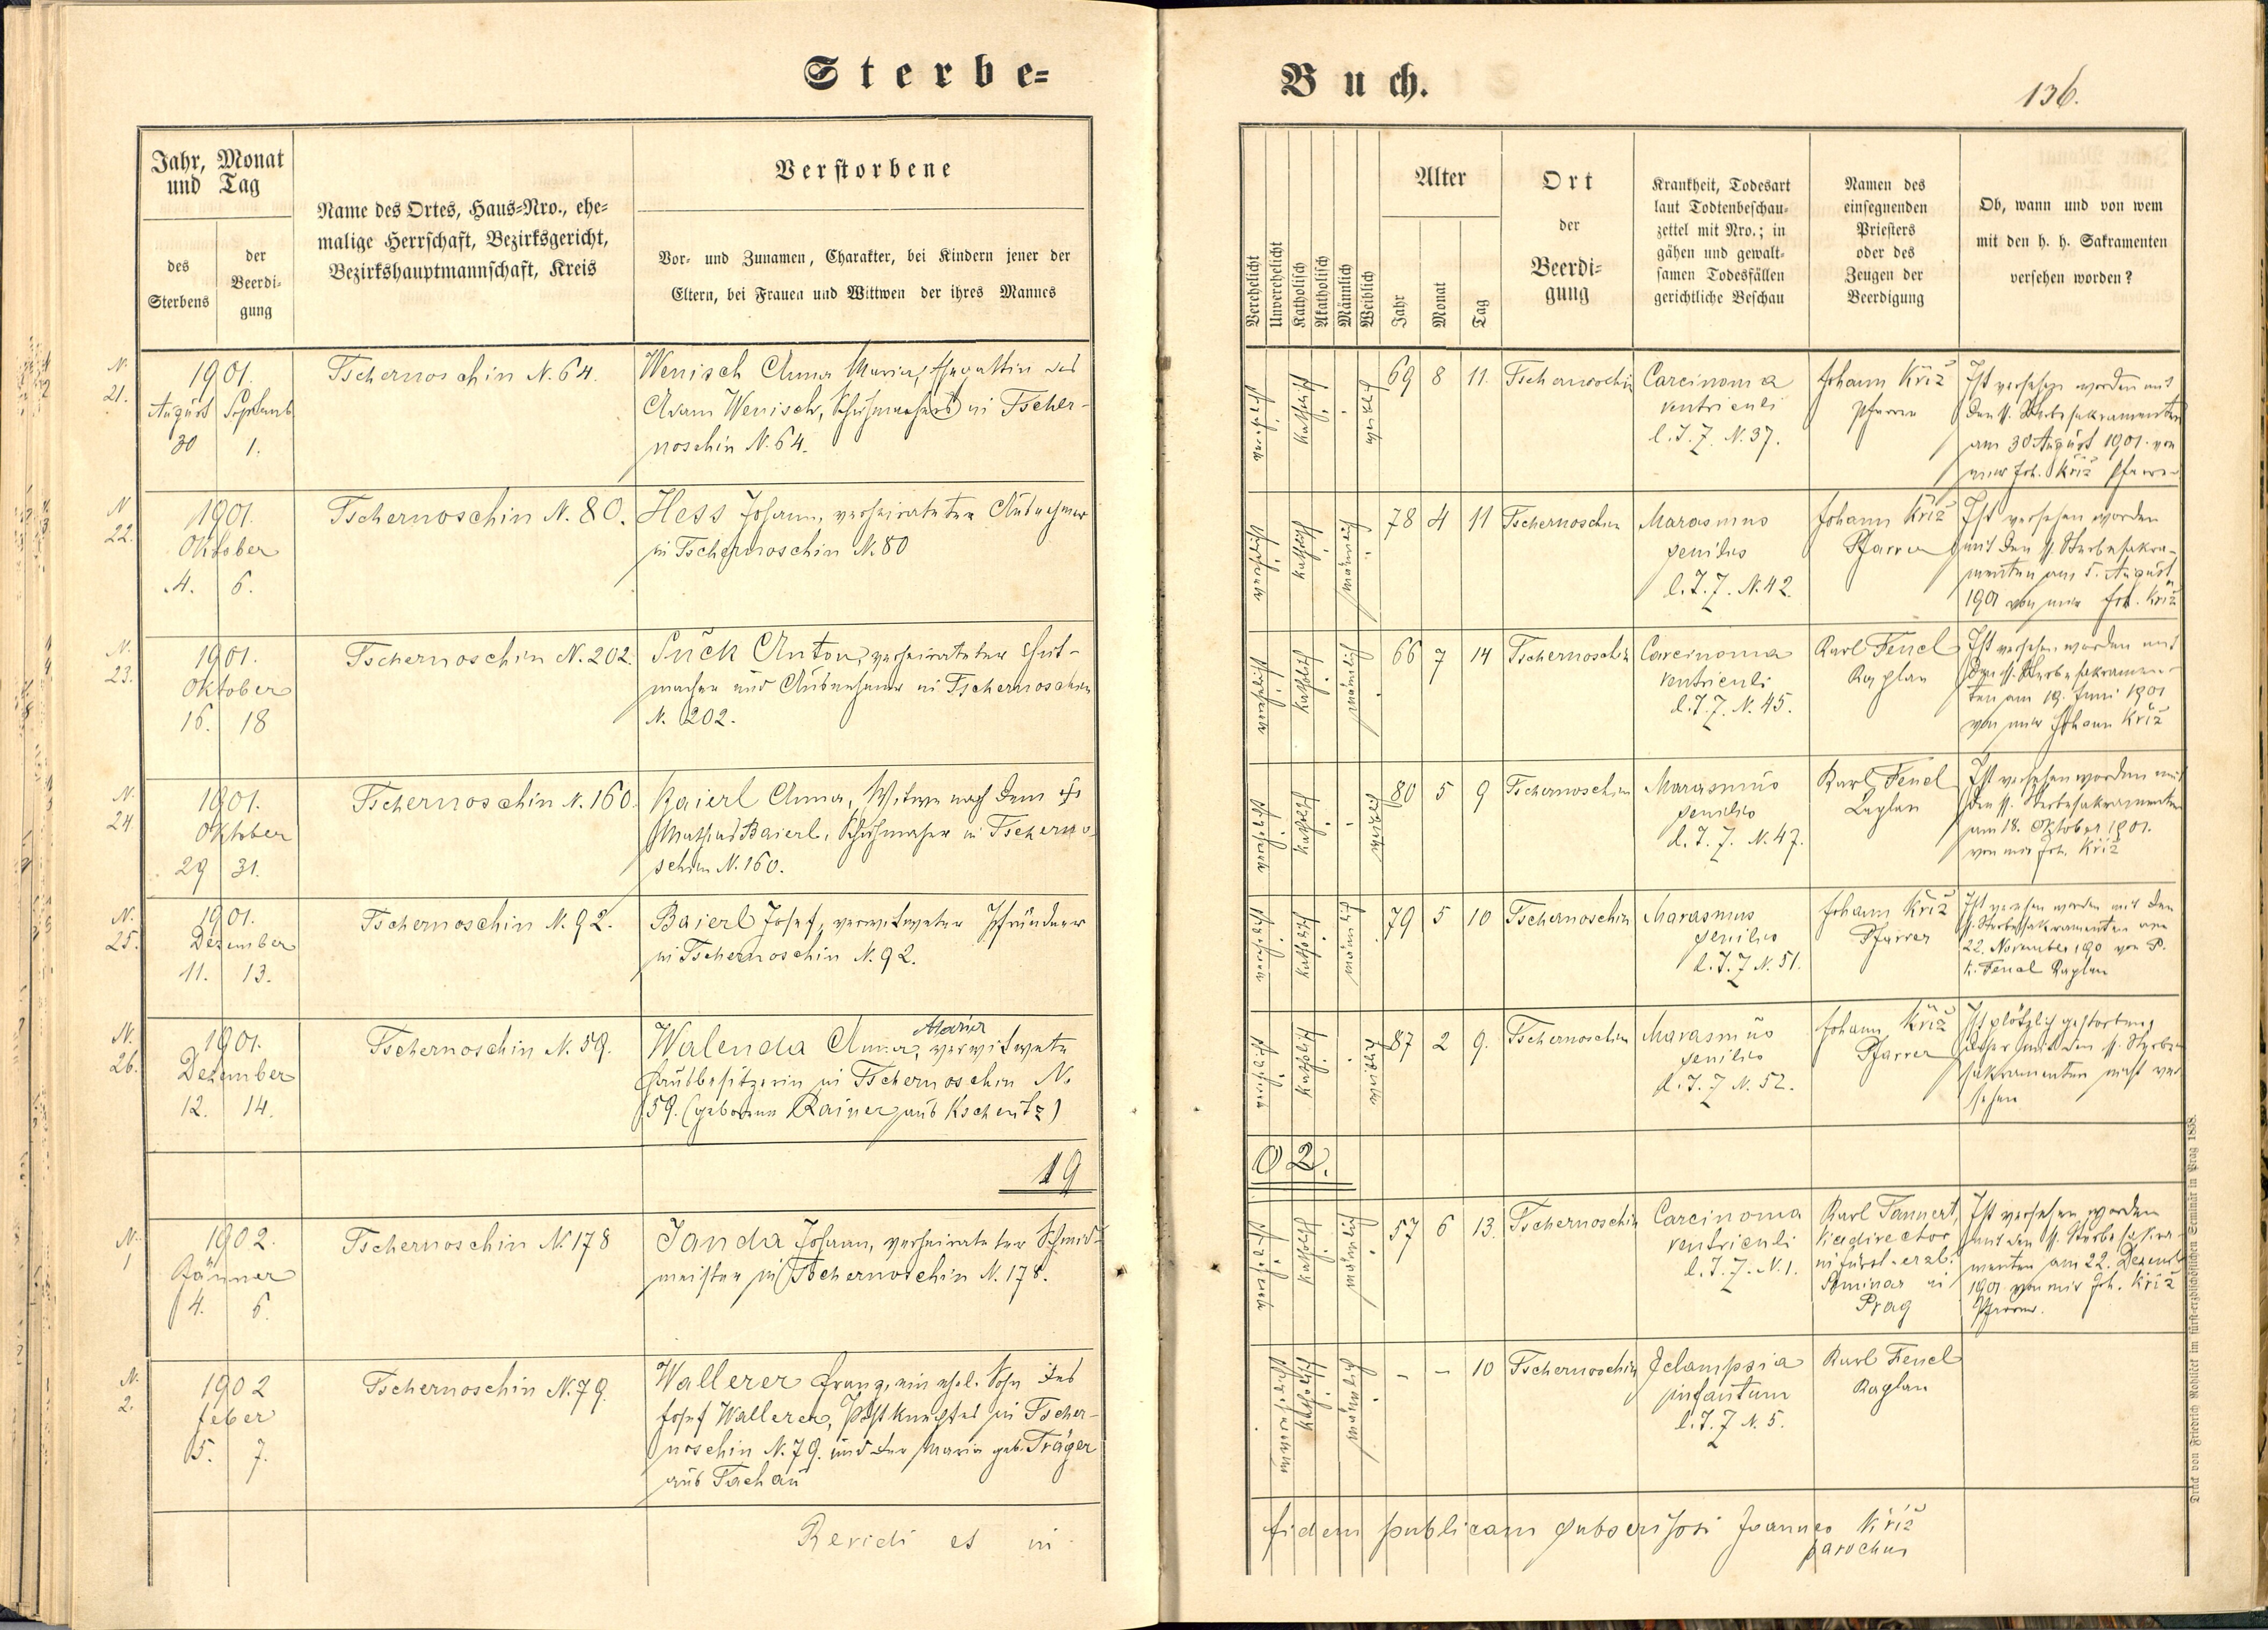 Sterbe=
Buch.
136.
Jahr, Monat
und Tag
des
Sterbens
der
Beerdi-
gung
Name des Ortes, Haus=Nro., ehe=
malige Herrschaft, Bezirksgericht,
Bezirkshauptmannschaft, Kreis
Verstorbene
Vor- und Zunamen, Charakter, bei Kindern jener der
Eltern, bei Frauen und Wittwen der ihres Mannes
Verehelicht
Unverehelicht
Katholisch
Akatholisch
Männlich
Weiblich
Alter
Jahr
Monat
Tag
Ort
der
Beerdi=
gung
Krankheit, Todesart
laut Todtenbeschau-
zettel mit Nro.; in
gähen und gewalt-
samen Todesfällen
gerichtliche Beschau
Namen des
einsegnenden
Priesters
oder des
Zeugen der
Beerdigung
Ob, wann und von wem
mit den h. h. Sakramenten
versehen worden?
N.
21.
1901.
August Septemb
30 1.
Tschernoschin N. 64.
Wenisch Anna Maria, Ehegattin des
Adam Wenisch, Schuhmachers in Tscher-
noschin N. 64.
katholisch
weiblich
69 8 11.
Tschernoschin
Carcinoma
ventriculi
l. T. Z. N. 37.
Johann Kříž
Pfarrer
Ist versehen worden mit
den h. Sterbesakramenten
am 30 August 1901. von
mir Joh. Kříž Pfarrer
N
22.
1901.
Oktober
4. 6.
Tschernoschin N. 80.
Hess Johann, verheirateter Ausnehmer
in Tschernoschin N. 80
katholisch
männlich
78 4 11
Tschernoschin
Marasmus
senilis
l. T. Z. N. 42.
Johann Kříž
Pfarrer
Ist versehen worden
mit den h. Sterbesakra-
menten am 5. August
1901 von mir Joh. Kříž
N.
23.
1901.
Oktober
16. 18
Tschernoschin N. 202.
Anton, verheirateter Hut-
macher und Ausnehmer in Tschernoschin
N. 202.
katholisch
männlich
66 7 14
Tschernoschin
Carcinoma
ventriculi
l. T. Z. N. 45.
Karl Fencl
Kaplan
Ist versehen worden mit
den h. Sterbesakramen-
ten am 19. Juni 1901
von mir Johann Kříž
N.
24.
1901.
Oktober
29 31.
Tschernoschin N. 160.
Baierl Anna, Witwe nach dem
Mathias Baierl, Schuhmacher in Tscherno-
schin N. 160.
katholisch
weiblich
80 5 9
Tschernoschin
Marasmus
senilis
l. T. Z. N. 47.
Karl Fencl
Kaplan
Ist versehen worden mit
den h. Sterbesakramenten
am 18. Oktober 1901.
von mir Joh. Kříž
N.
25.
1901.
Dezember
11. 13.
Tschernoschin N. 92.
Baierl Josef, verwitweter Pfründner
in Tschernoschin N. 92.
katholisch
männlich
79 5 10
Tschernoschin
Marasmus
senilis
l. T. Z N. 51.
Johann Kříž
Pfarrer
Ist versehen worden mit den
h. Sterbesakramenten am
22. November 190 von P.
K. Fencl Kaplan
N.
26.
1901.
Dezember
12. 14.
Tschernoschin N. 59.
Maria
Walenda Anna, verwitwete
Hausbesitzerin in Tschernoschin N.
59. (geborene Rainer aus Kscheutz)
katholisch
weiblich
87 2 9.
Tschernoschin
Marasmus
senilis
l. T. Z N. 52.
Johann Kříž
Pfarrer
Ist plötzlich gestorben,
daher mit den h. Sterbe-
sakramenten nicht ver
sehen
19
02.
N.
1
1902.
Jänner
4. 6.
Tschernoschin N. 178
Janda Johann, verheirateter Schmied-
meister in Tschernoschin N. 178.
katholisch
männlich
57 6 13.
Tschernoschin
Carcinoma
ventriculi
l. T. Z. N. 1.
Karl Tannert,
Vicedirector
in fürst-erzb.
Seminar in
Prag
Ist versehen worden
mit den h. Sterbesakra-
menten am 22. Dezemb
1901. von mir Joh. Kříž
Pfarrer.
N.
2.
1902
Feber
5. 7.
Tschernoschin N. 79.
Wallerer Franz, ein ehel. Sohn des
Josef Wallerer, Postknechtes in Tscher-
noschin N. 79. und der Maria geb. Träger
aus Tachau
katholisch
männlich
- - 10
Tschernoschin
Eclampsia
infantum
l. T. Z N. 5.
Karl Fencl
Kaplan
Revidi et in
fidem publicam subscripsi Joannes Kříž
parochus
Druck von Friedrich Rohliček im fürst-erzbischöflichen Seminär in Prag 1858.